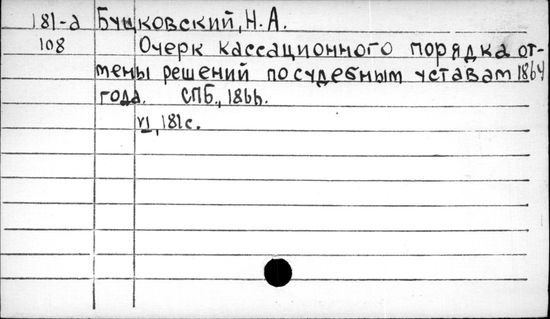 181-а Буцковский, Н.А.
108 Очерк кассационного порядка от-
мены решений по судебным уставам 1864
года. СПБ., 1866.
VI, 181с.